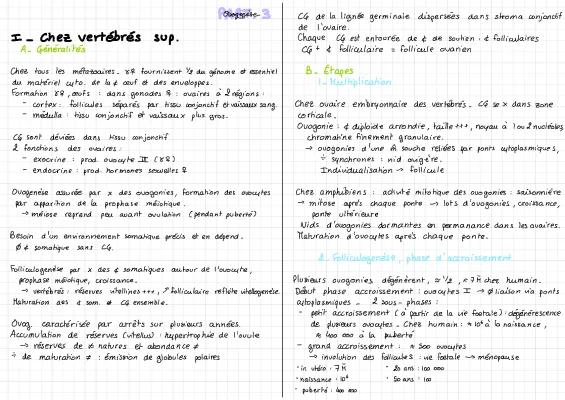 PART 3
Ovogenèse
I - Chez vertébrés sup.
A - Généralités
Chez tous les métazoaires. γ♀ fournissent 1/2 du génome et essentiel
du matériel cyto. de la ¢ œuf et des enveloppes.
Formation γ♀, œufs : dans gonades ♀ : ovaires à 2 régions :
- cortex : follicules séparés par tissu conjonctif et vaisseaux sang.
- médulla : tissu conjonctif et vaisseaux plus gros.
CG sont déviées dans tissu conjonctif
2 fonctions des ovaires :
- exocrine : prod. ovocyte II (γ♀)
- endocrine : prod. hormones sexuelles ♀
Ovogenèse assurée par x des ovogonies, formation des ovocytes
par apparition de la prophase méiotique.
→ méiose reprend peu avant ovulation (pendant puberté)
Besoin d'un environnement somatique précis et en dépend.
∅ ¢ somatique sans CG.
Folliculogenèse par x des ¢ somatiques autour de l'ovocyte,
prophase méiotique, croissance.
→ vertébrés : réserves vitellines +++, ↗ folliculaire reflète vitellogenèse.
Maturation des ¢ som. et CG ensemble.
Ovog. caractérisée par arrêts sur plusieurs années.
Accumulation de réserves (vitellus) : hypertrophie de l'ovule
→ réserves de ≠ natures et abondance ≠
÷ de maturation ≠ : émission de globules polaires
CG de la lignée germinale dispersées dans stroma conjonctif
de l'ovaire.
Chaque CG est entourée de ¢ de soutien : ¢ folliculaires
CG + ¢ folliculaire = follicule ovarien
B - Étapes
1 - Multiplication
Chez ovaire embryonnaire des vertébrés. CG se x dans zone
corticale.
Ovogonie : ¢ diploïde arrondie, taille +++, noyau à 1 ou 2 nucléoles
chromatine finement granulaire.
→ ovogonies d'une m̂ souche reliées par ponts cytoplasmiques,
÷ synchrones : nid ovigère.
Individualisation → follicule
Chez amphibiens : activité mitotique des ovogonies : saisonnière
→ mitose après chaque ponte → lots d'ovogonies, croissance,
ponte ultérieure
Nids d'ovogonies dormantes en permanence dans les ovaires.
Maturation d'ovocytes après chaque ponte.
2 - Folliculogenèse, phase d'accroissement
Plusieurs ovogonies dégénèrent, ≈ 1/2, ≈ 7M chez humain.
Début phase accroissement : ovocytes I → ∅ liaison via ponts
cytoplasmiques - 2 sous-phases :
- petit accroissement (à partir de la vie foetale) : dégénérescence
de plusieurs ovocytes. Chez humain : ≈ 10⁶ à la naissance,
≈ 400 000 à la puberté
- grand accroissement : ≈ 500 ovocytes
→ involution des follicules : vie foetale → ménopause
· in utéro : 7M
· 20 ans : 100 000
· naissance : 10⁶
· 50 ans : 100
· puberté : 400 000